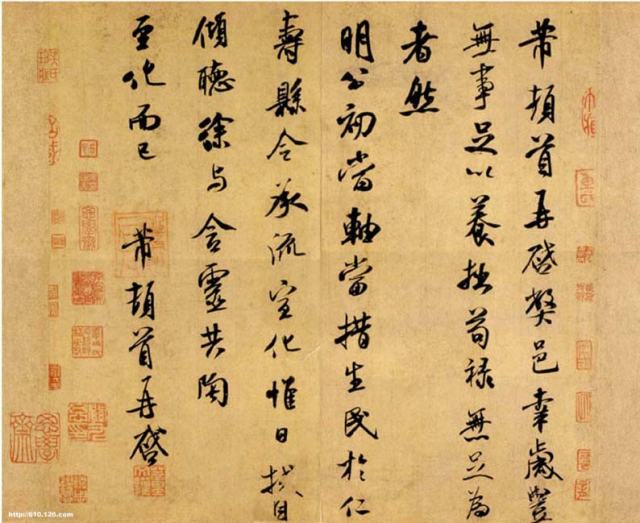 芾頓首再啓弊邑幸歲豐
無事足以養拙苟祿無足為
者然
明公初當軸當措生民於仁
壽縣令承流宣化惟日拭目
傾聽徐与含靈共陶
至化而已 芾頓首再啓
http://610.126.com